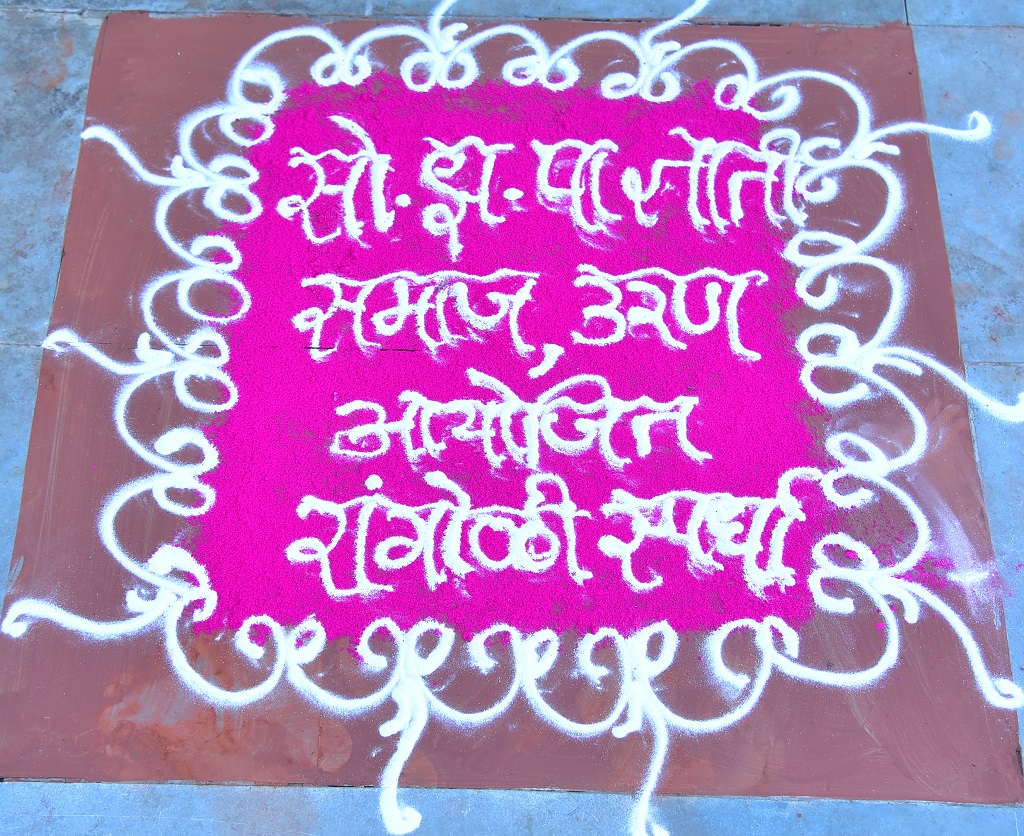 सो. क्ष. पा ज्ञाती
समाज, उरण
आयोजित
रांगोळी स्पर्धा